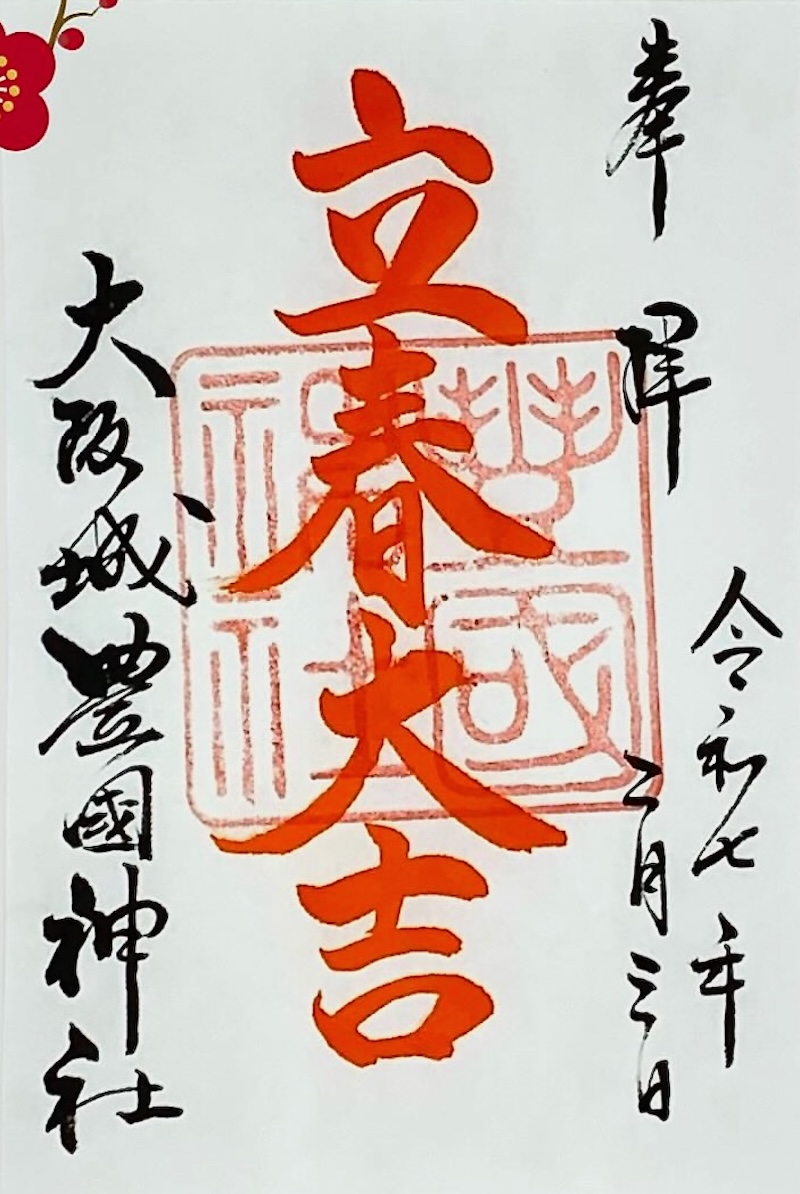 奉拝
令和七年
二月三日
立春大吉
豊國
神社
大阪城豊國神社